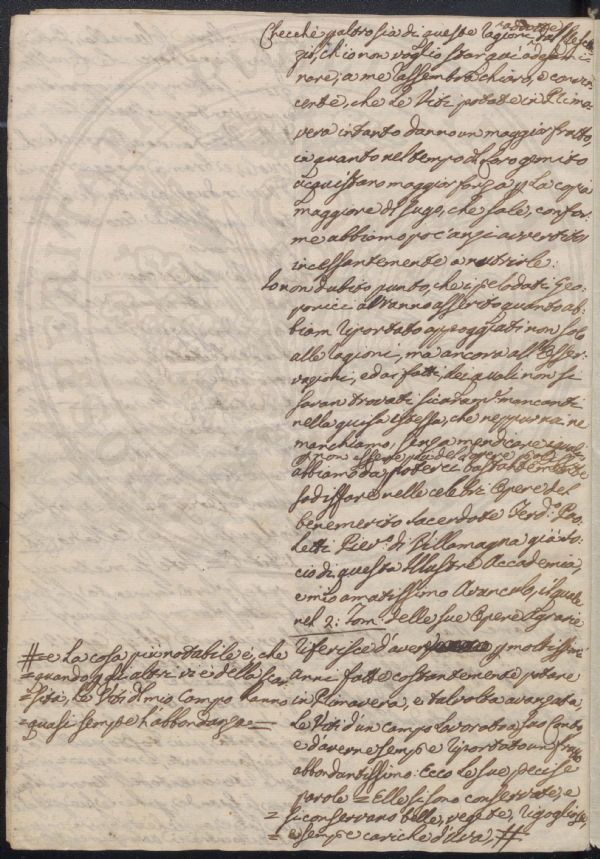 Checchè p altro sia di queste ragioni addotte dal Ples
zio, ch'io non voglio star qui ad
nare, a me rassembra chiaro, e conv
cente, che le Viti potate in Prima
vera intanto danno un maggior frutto,
in quanto nel tempo di loro gemito
acquistano maggior forza p la copia
maggiore di sugo, che sale, confor-
me abbiamo poc'anzi avvertito
incessantemente a nutrirle:
Io non dubito punto, che i pelodati Geo-
ponici abbiano asserito quanto ab-
biam riportato appoggiati non solo
alle ragioni, ma ancora all'Osser-
vazioni, ed ai fatti, dei quali non si
saran trovati sicuram.e mancanti
nella guisa istessa, che neppur noi ne
manchiamo; senza mendicare
non essere
abbiamo da poterci bastantemente
sodisfare nelle celebri Opere del
benemerito Sacerdote Ferd.o Pao-
letti Piev.o di Villamagna già so-
cio di questa Illustre Accademia,
e mio amatissimo Avunculo, il quale
nel 2: Tom.o delle sue Opere Agrarie
riferisce d'aver p moltissimi
anni fatte costantemente potare
in Primavera, e talvolta avanzata
le Viti d'un campo lavorato a suo conto
e d'averne sempre riportato un frutto
abbondantissimo: Ecco le sue precise
parole = Elle si sono conservate, e
= si conservano belle, vegete, rigogliose,
= e sempre cariche d'uva, #
# = e la cosa più notabile è, che
= quando p gli altri vi è della scar
= sità, le Viti del mio Campo hanno
= quasi sempre l'abbondanza =